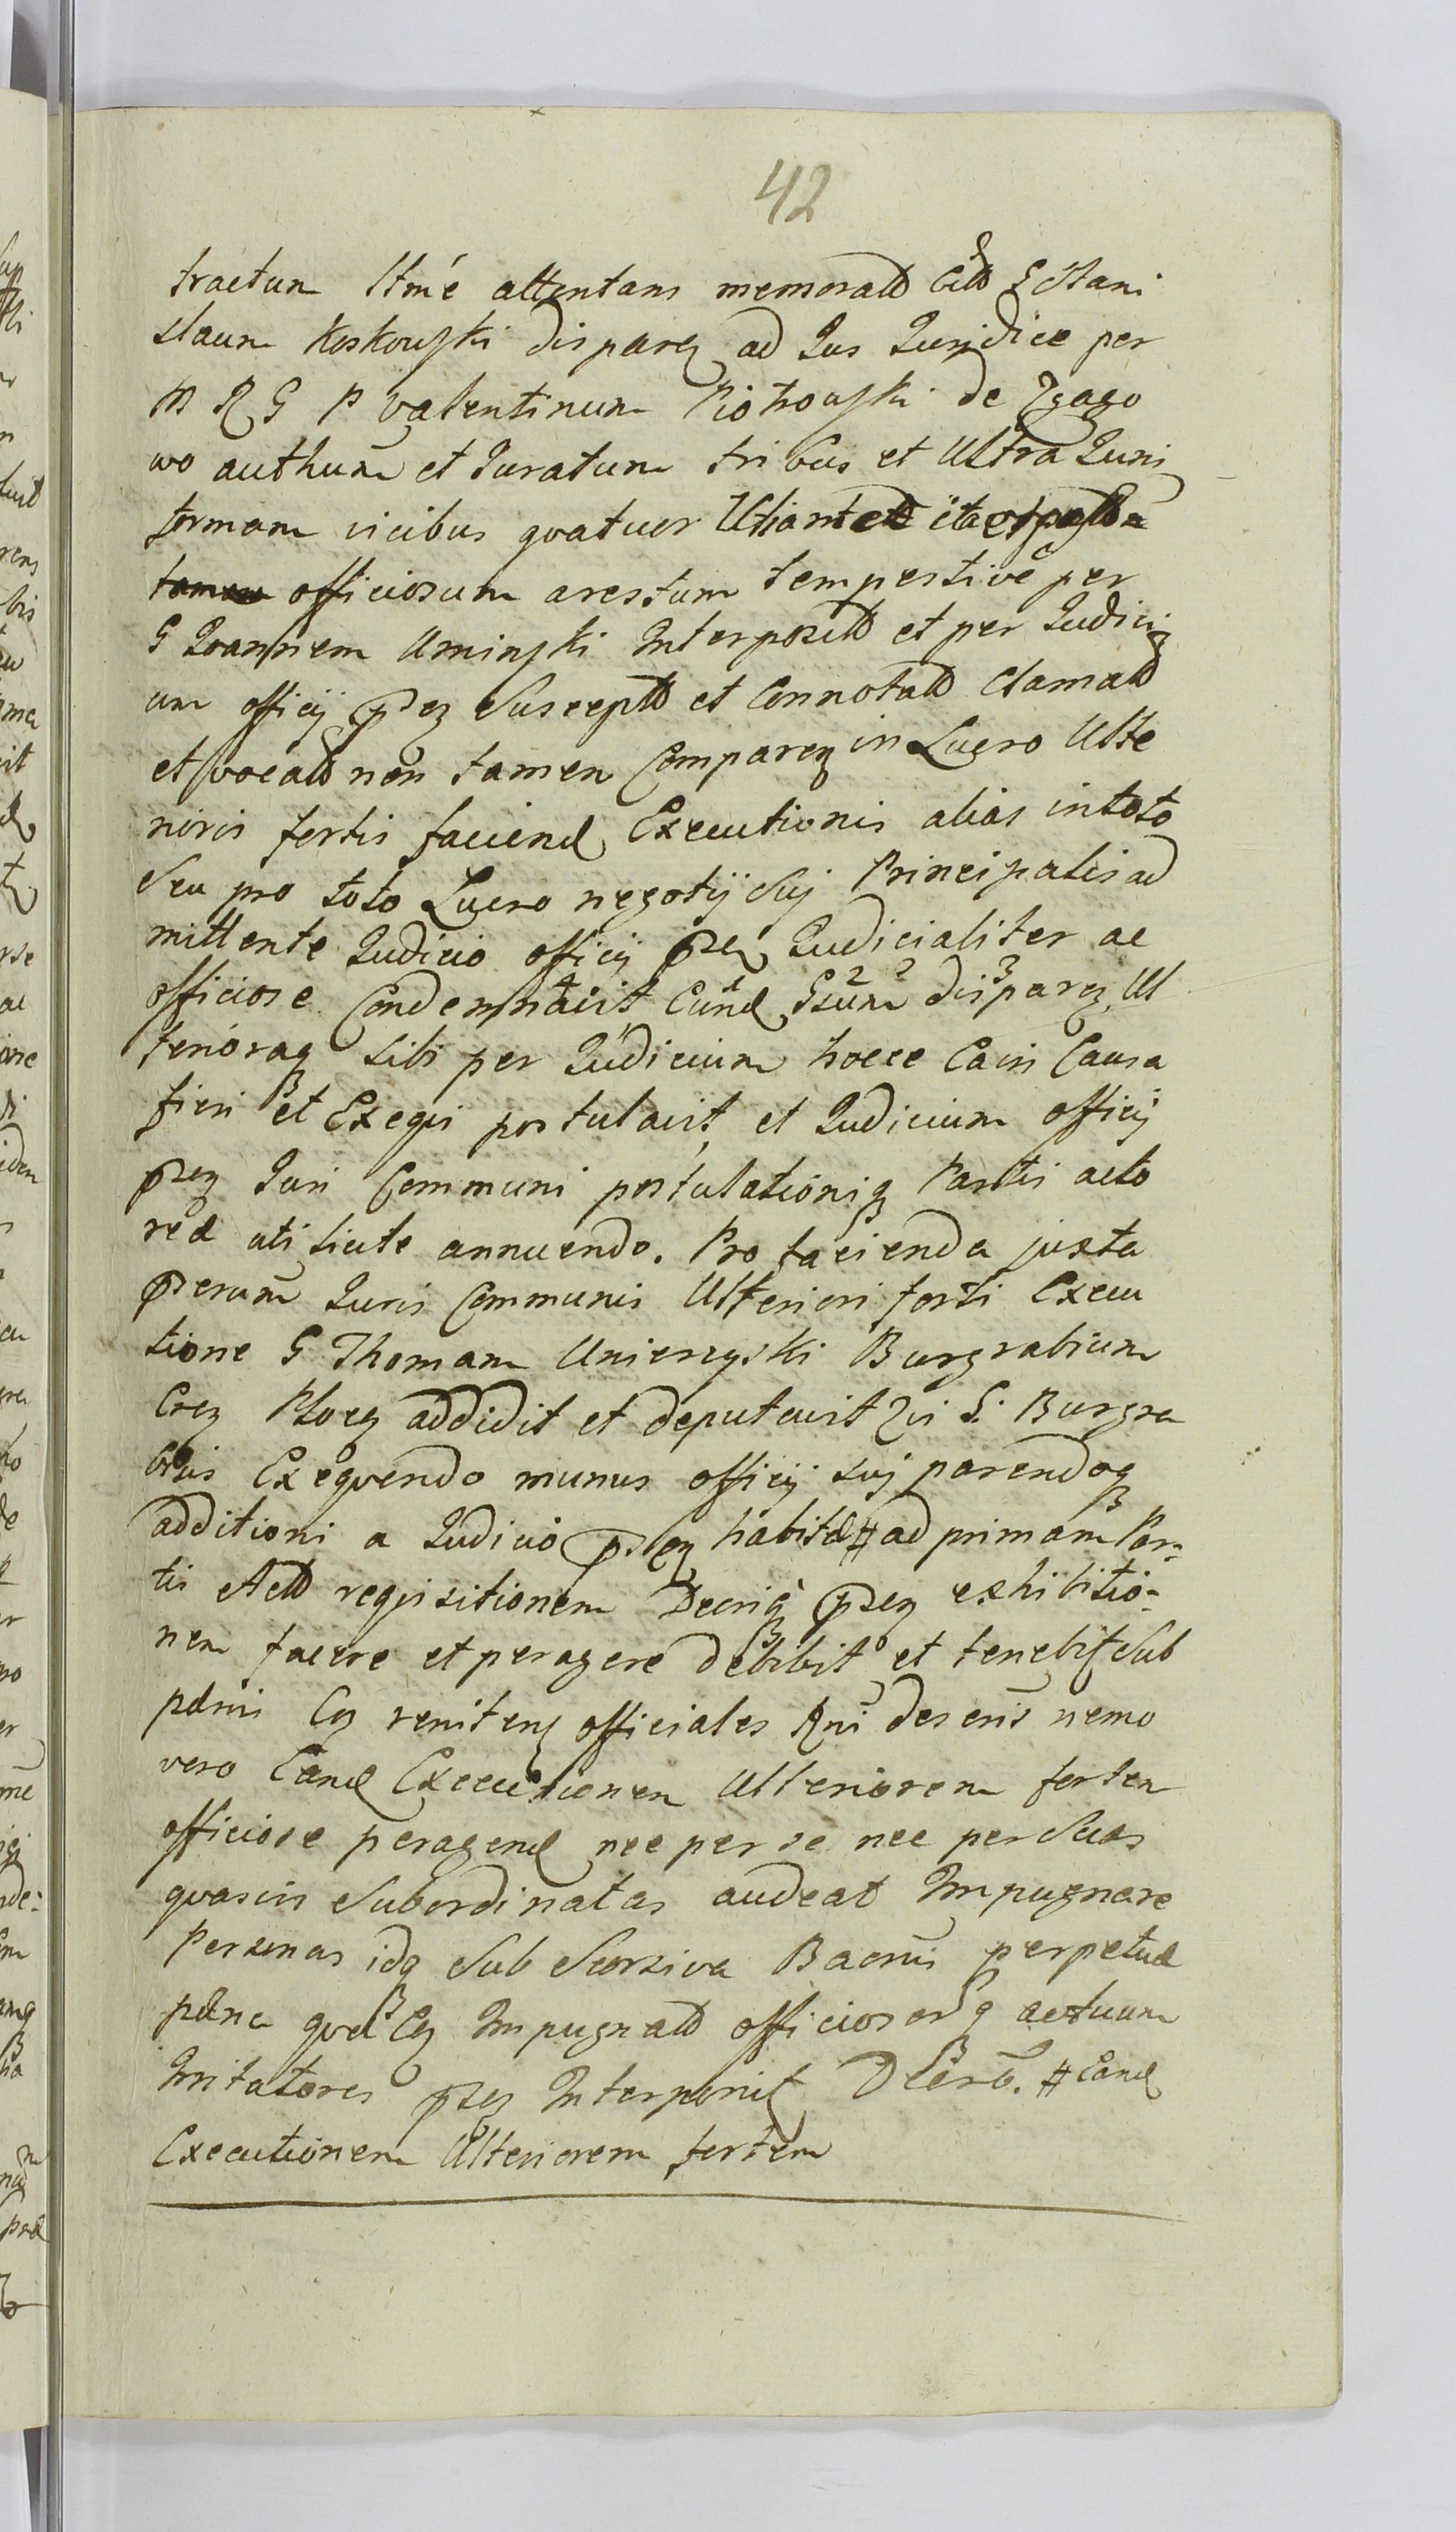 42
tractum Itmé attentans memorató G Stani
slaum Koskowski disparen ad Jus Juridice per
M R G P Valentinum Piotrowski de Zgago
wo authum et Juratum tribus et Ultra Juris
formam vicibus quatuor
officiosum arestum tempestivè per
G Joannem Uminski Interposito et per Judici
um officij psen Suscepto et Connotato Clamato
et vocato non tamen Comparen in Lucro Ulte
rioris fortis faciend Executionis alias in toto
Seu pro toto Lucro negotij Suj Principalis ad
mittente Judicio officij psen Judicialiter ac
officiose Condemnavit Eund Gsum disparen Ul
terioraq sibi per Judicium hocce Ca in Causa
fieri et Exequi postulavit, et Judicium officij
psen Juri Communi postulationiq Partis acto
reæ uti licite annuendo. Pro facienda juxta
pserum Juris Communis Ulteriori forti Execu
tione G Thomam Unierzyski Burgrabium
Cren Plocen addidit et deputavit qui G. Burgra
bius Exequendo munus officij suj parendoq
additioni a Judicio psen habitæ # ad primam Par=
tis Actó requisitionem Decriq psen exhibitio=
nem facere et peragere debibit et tenebit Sub
pænis Con reniten officiales Rni descris nemo
vero Eand Executionem Ulteriorem fortem
officiose peragend nec per se nec per Suas
quasvis Subordinatas audeat Impugnare
Personas idq Sub Seorsiva Bacnis perpetuæ
pæna quæ Con Impugnató officiosorq actuum
Irritatores psen Interponit Dcirò. # Eand
Executionem Ulteriorem fortem